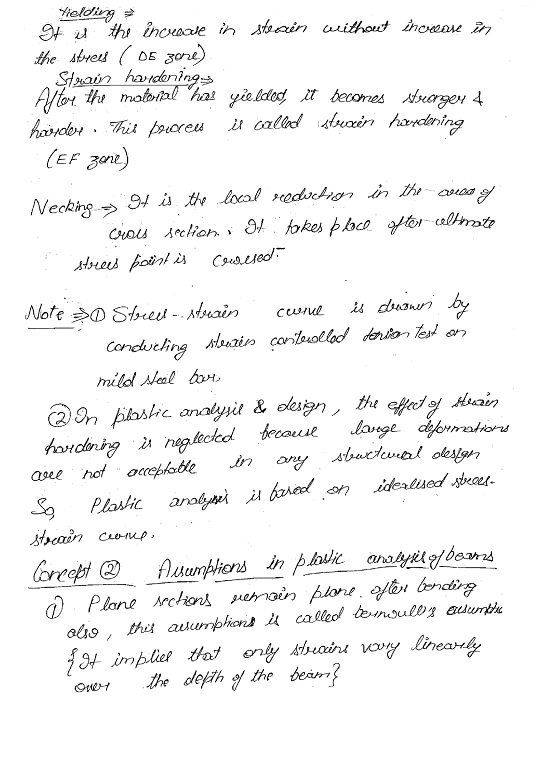 Yielding ⇒
It is the increase in strain without increase in
the stress ( DE zone)
Strain hardening ⇒
After the material has yielded, it becomes stronger &
harder. This process is called strain hardening
(EF zone)
Necking ⇒ It is the local reduction in the area of
cross section. It takes place after ultimate
stress point is crossed.
Note ⇒ ① Stress-strain curve is drawn by
conducting strain controlled tension test on
mild steel bar.
② In plastic analysis & design, the effect of strain
hardening is neglected because large deformations
are not acceptable in any structural design
So, Plastic analysis is based on idealised stress-
strain curve.
Concept ② Assumptions in plastic analysis of beams
① Plane sections remain plane after bending
also, this assumptions is called bernoulli's assumptio
{It implies that only strains vary linearly
over the depth of the beam}